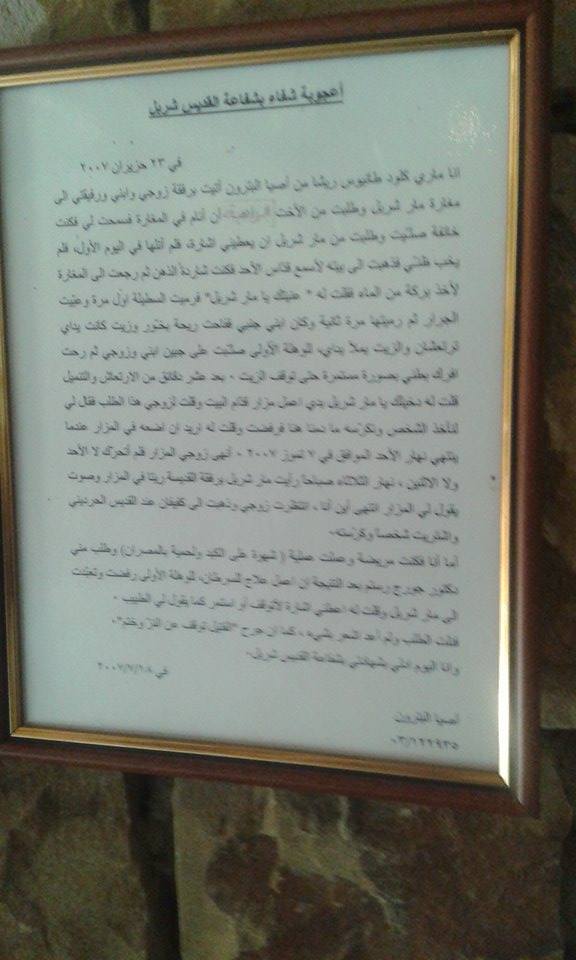 أعجوبة شفاء بشفاعة القديس شربل
في ٢٣ حزيران ٢٠٠٧
انا ماري كلود طانيوس ريشا من أصيا البترون أتيت برفقة زوجي وابني ورفيقتي الى
مغارة مار شربل وطلبت من الأخت الراهبة أن أنام في المغارة فسمحت لي فكنت
خائفة صلّيت وطلبت من مار شربل ان يعطيني اشارة، فلم أنلها في اليوم الأول، فلم
يخب ظنّي فذهبت الى بيته لأسمع قدّاس الأحد فكنت شاردة الذهن ثم رجعت الى المغارة
لأخذ بركة من الماء فقلت له " عنيتك يا مار شربل" فرميت السطيلة اوّل مرة وعنيت
الجرار ثم رميتها مرة ثانية وكان ابني جنبي ففاحت ريحة بخّور وزيت كانت يداي
ترتعشان والزيت يملأ يداي، للوهلة الأولى صلّبت على جبين ابني وزوجي ثم رحت
افرك بطني بصورة مستمرة حتى توقف الزيت - بعد عشر دقائق من الارتعاش والتنميل
قلت له دخيلك يا مار شربل بدي اعمل مزار قدّام البيت وقلت لزوجي هذا الطلب فقال لي
لنأخذ الشخص ونكرّسه ما دمنا هنا فرفضت وقلت له اريد ان اضعه في المزار عندما
ينتهي نهار الأحد الموافق في ٧ تموز ٢٠٠٧ - أنهى زوجي المزار فلم أتحرّك لا الأحد
ولا الاثنين ، نهار الثلاثاء صباحا رأيت مار شربل برفقة القديسة ريتا في المزار وصوت
يقول لي المزار انتهى أين أنا ، انتظرت زوجي وذهبت الى كفيفان عند القديس الحرديني
واشتريت شخصا وكرّسته-
أما أنا فكنت مريضة وعملت عملية ( شهوة على الكبد ولحمية بالمصران) وطلب مني
دكتور جورج رستم بعد النتيجة ان اعمل علاج للسرطان، للوهلة الأولى رفضت وتعبّدت
الى مار شربل وقلت له اعطني اشارة لأتوقف أو استمر كما يقول لي الطبيب -
فنلت الطلب ولم أعد اشعر بشيء ، كما ان جرح "الفتيل توقف عن النزّ وختم"-
وانا اليوم ادلي بشهادتي بشفاعة القديس شربل-
في ٢٠٠٧/٧/٢٨
أصيا البترون
٠٣/١٢٢٩٣٥